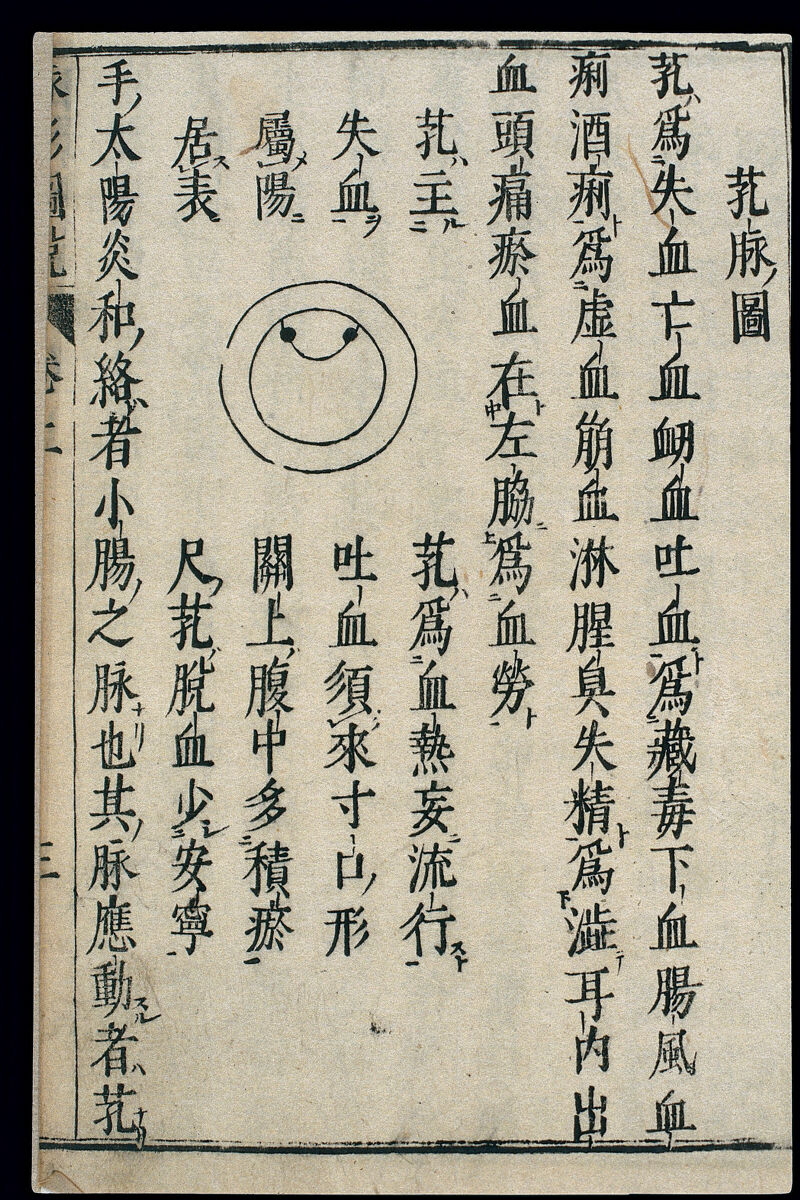 芤脉圖
芤爲失血亡血衂血吐血爲藏毒下血腸風血
痢酒痢爲虛血崩血淋腥臭失精爲澁耳内出
血頭痛瘀血在左脇爲血勞
芤主
失血
屬陽
居表
芤爲血熱妄流行
吐血須來寸口形
關上腹中多積瘀
尺芤脫血少安寧
手太陽炎和絡者小腸之脉也其脉應動者芤